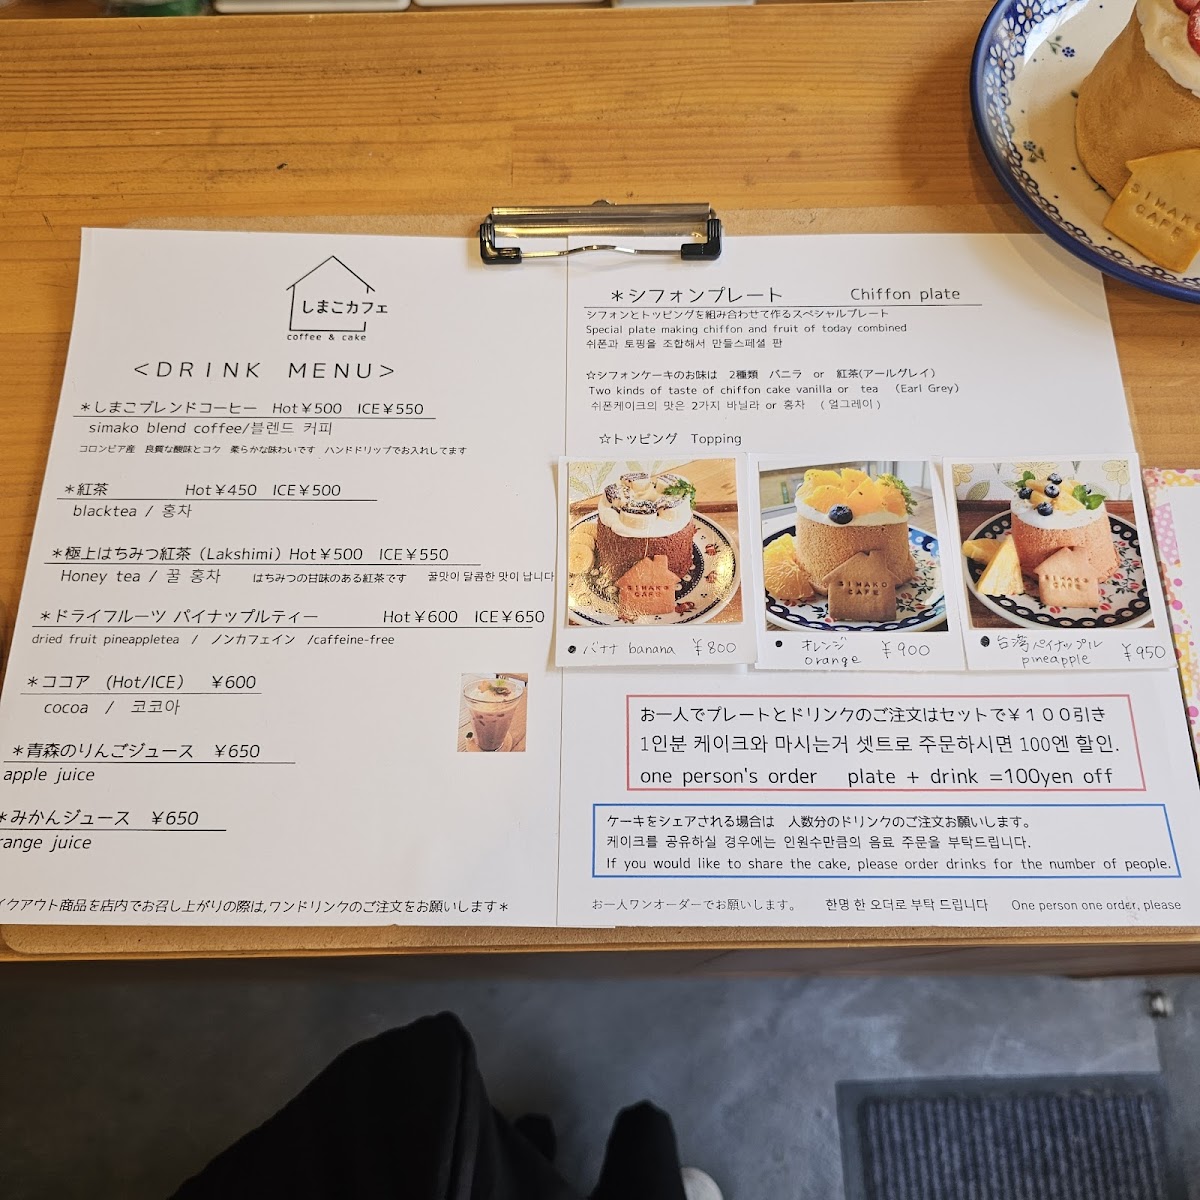 しまこカフェ
coffee & cake
<DRINK MENU>
*しまこブレンドコーヒー Hot¥500 ICE¥550
simako blend coffee/블렌드 커피
コロンビア産 良質な酸味とコケ 柔らかな味わいです ハンドドリップでお入れしてます
*紅茶 Hot¥450 ICE¥500
blacktea / 홍차
*極上はちみつ紅茶（Lakshimi）Hot¥500 ICE¥550
Honey tea / 꿀 홍차 はちみつの甘味のある紅茶です 꿀맛이 달콤한 맛이 납니다
*ドライフルーツ パイナップルティー Hot¥600 ICE¥650
dried fruit pineappletea / ノンカフェイン /caffeine-free
*ココア （Hot/ICE） ¥600
cocoa / 코코아
*青森のりんごジュース ¥650
apple juice
*みかんジュース ¥650
range juice
イクアウト商品を店内でお召し上がりの際は,ワンドリンクのご注文をお願いします*
*シフォンプレート Chiffon plate
シフォンとトッピングを組み合わせて作るスペシャルプレート
Special plate making chiffon and fruit of today combined
쉬폰과 토핑을 조합해서 만들스페셜 판
☆シフォンケーキのお味は 2種類 バニラ or 紅茶(アールグレイ)
Two kinds of taste of chiffon cake vanilla or tea （Earl Grey）
쉬폰케이크의 맛은 2가지 바닐라 or 홍차 （얼그레이）
☆トッピング Topping
SIMAKO CAFE
SIMAKO CAFE
SIMAKO CAFE
● バナナ banana ¥800
● オレンジ orange ¥900
● 台湾パイナップル pineapple ¥950
お一人でプレートとドリンクのご注文はセットで¥１００引き
1인분 케이크와 마시는거 셋트로 주문하시면 100엔 할인.
one person's order plate + drink =100yen off
ケーキをシェアされる場合は 人数分のドリンクのご注文お願いします。
케이크를 공유하실 경우에는 인원수만큼의 음료 주문을 부탁드립니다.
If you would like to share the cake, please order drinks for the number of people.
お一人ワンオーダーでお願いします。 한명 한 오더로 부탁 드립니다 One person one order, please
SIMAK
CAFE